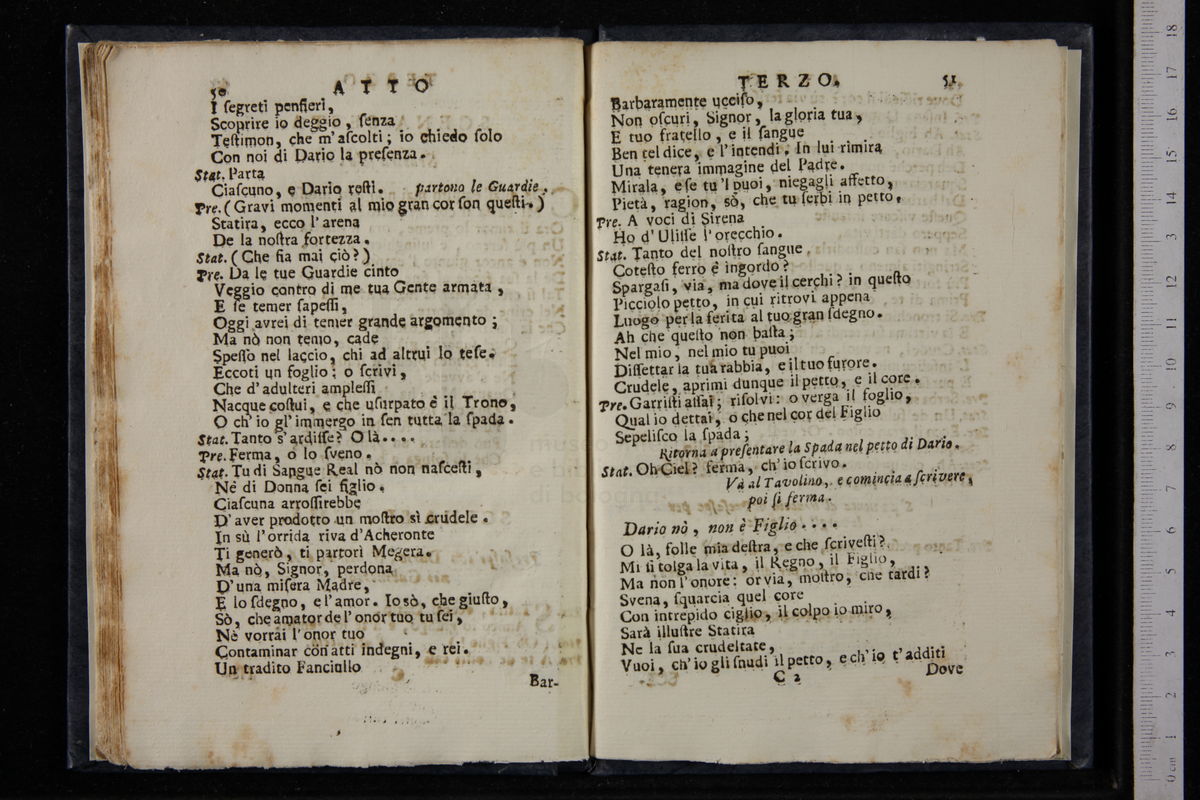 50 ATTO
I ſegreti penſieri,
Scoprire io deggio, ſenza
Teſtimon, che m'aſcolti; io chiedo ſolo
Con noi di Dario la preſenza.
Stat. Parta
Ciaſcuno, e Dario reſti. partono le Guardie.
Pre. (Gravi momenti al mio gran cor ſon queſti.)
Statira, ecco l'arena
De la noſtra fortezza.
Stat. (Che fia mai ciò?)
Pre. Da le tue Guardie cinto
Veggio contro di me tua Gente armata,
E ſe temer ſapeſſi,
Oggi avrei di temer grande argomento;
Ma nò non temo, cade
Speſſo nel laccio, chi ad altrui lo teſe.
Eccoti un foglio; o ſcrivi,
Che d'adulteri ampleſſi
Nacque coſtui, e che uſurpato è il Trono,
O ch'io gl'immergo in ſen tutta la ſpada.
Stat. Tanto s'ardiſſe? O là....
Pre. Ferma, o lo ſveno.
Stat. Tu di Sangue Real nò non naſceſti,
Nè di Donna ſei figlio.
Ciaſcuna arroſſirebbe
D'aver prodotto un moſtro sì crudele.
In sù l'orrida riva d'Acheronte
Ti generò, ti partorì Megera.
Ma nò, Signor, perdona
D'una miſera Madre,
E lo ſdegno, e l'amor. Io sò, che giuſto,
Sò, che amator de l'onor tuo tu ſei,
Nè vorrai l'onor tuo
Contaminar con atti indegni, e rei.
Un tradito Fanciullo
Bar-
TERZO. 51
Barbaramente ucciſo,
Non oſcuri, Signor, la gloria tua,
E tuo fratello, e il ſangue
Ben tel dice, e l'intendi. In lui rimira
Una tenera immagine del Padre.
Mirala, e ſe tu'l puoi, niegagli affetto,
Pietà, ragion, sò, che tu ſerbi in petto.
Pre. A voci di Sirena
Ho d'Uliſſe l'orecchio.
Stat. Tanto del noſtro ſangue
Coteſto ferro è ingordo?
Spargaſi, via, ma dove il cerchi? in queſto
Picciolo petto, in cui ritrovi appena
Luogo per la ferita al tuo gran ſdegno.
Ah che queſto non baſta;
Nel mio, nel mio tu puoi
Diſſettar la tua rabbia, e il tuo furore.
Crudele, aprimi dunque il petto, e il core.
Pre. Garriſti aſſai; riſolvi: o verga il foglio,
Qual io dettai, o che nel cor del Figlio
Sepeliſco la ſpada;
Ritorna a preſentare la Spada nel petto di Dario.
Stat. Oh Ciel? ferma, ch'io ſcrivo.
Và al Tavolino, e comincia a ſcrivere,
poi ſi ferma.
Dario nò, non è Figlio....
O là, folle mia deſtra, e che ſcriveſti?
Mi ſi tolga la vita, il Regno, il Figlio,
Ma non l'onore: or via, moſtro, che tardi?
Svena, ſquarcia quel core
Con intrepido ciglio, il colpo io miro,
Sarà illuſtre Statira
Ne la ſua crudeltate,
Vuoi, ch'io gli ſnudi il petto, e ch'io t'additi
C 2 Dove